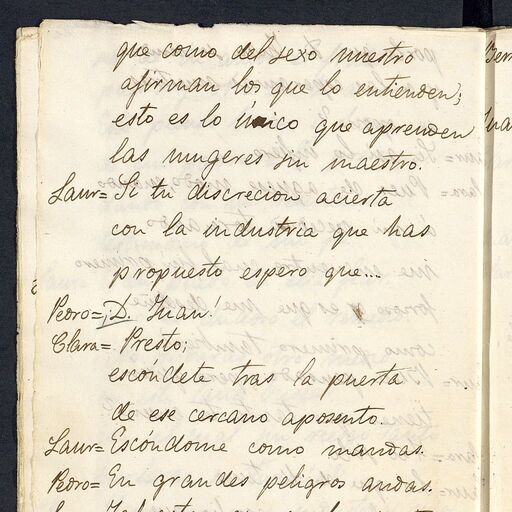 que como del sexo nuestro
afirman los que lo entienden;
esto es lo único que aprenden
las mugeres sin maestro.
Laur= Si tu discrecion acierta
con la industria que has
propuesto espero que...
Pedro= ¡D. Juan!
Clara= Presto;
escóndete tras la puerta
de ese cercano aposento.
Laur= Escóndome como mandas.
Pedro= En grandes peligros andas.